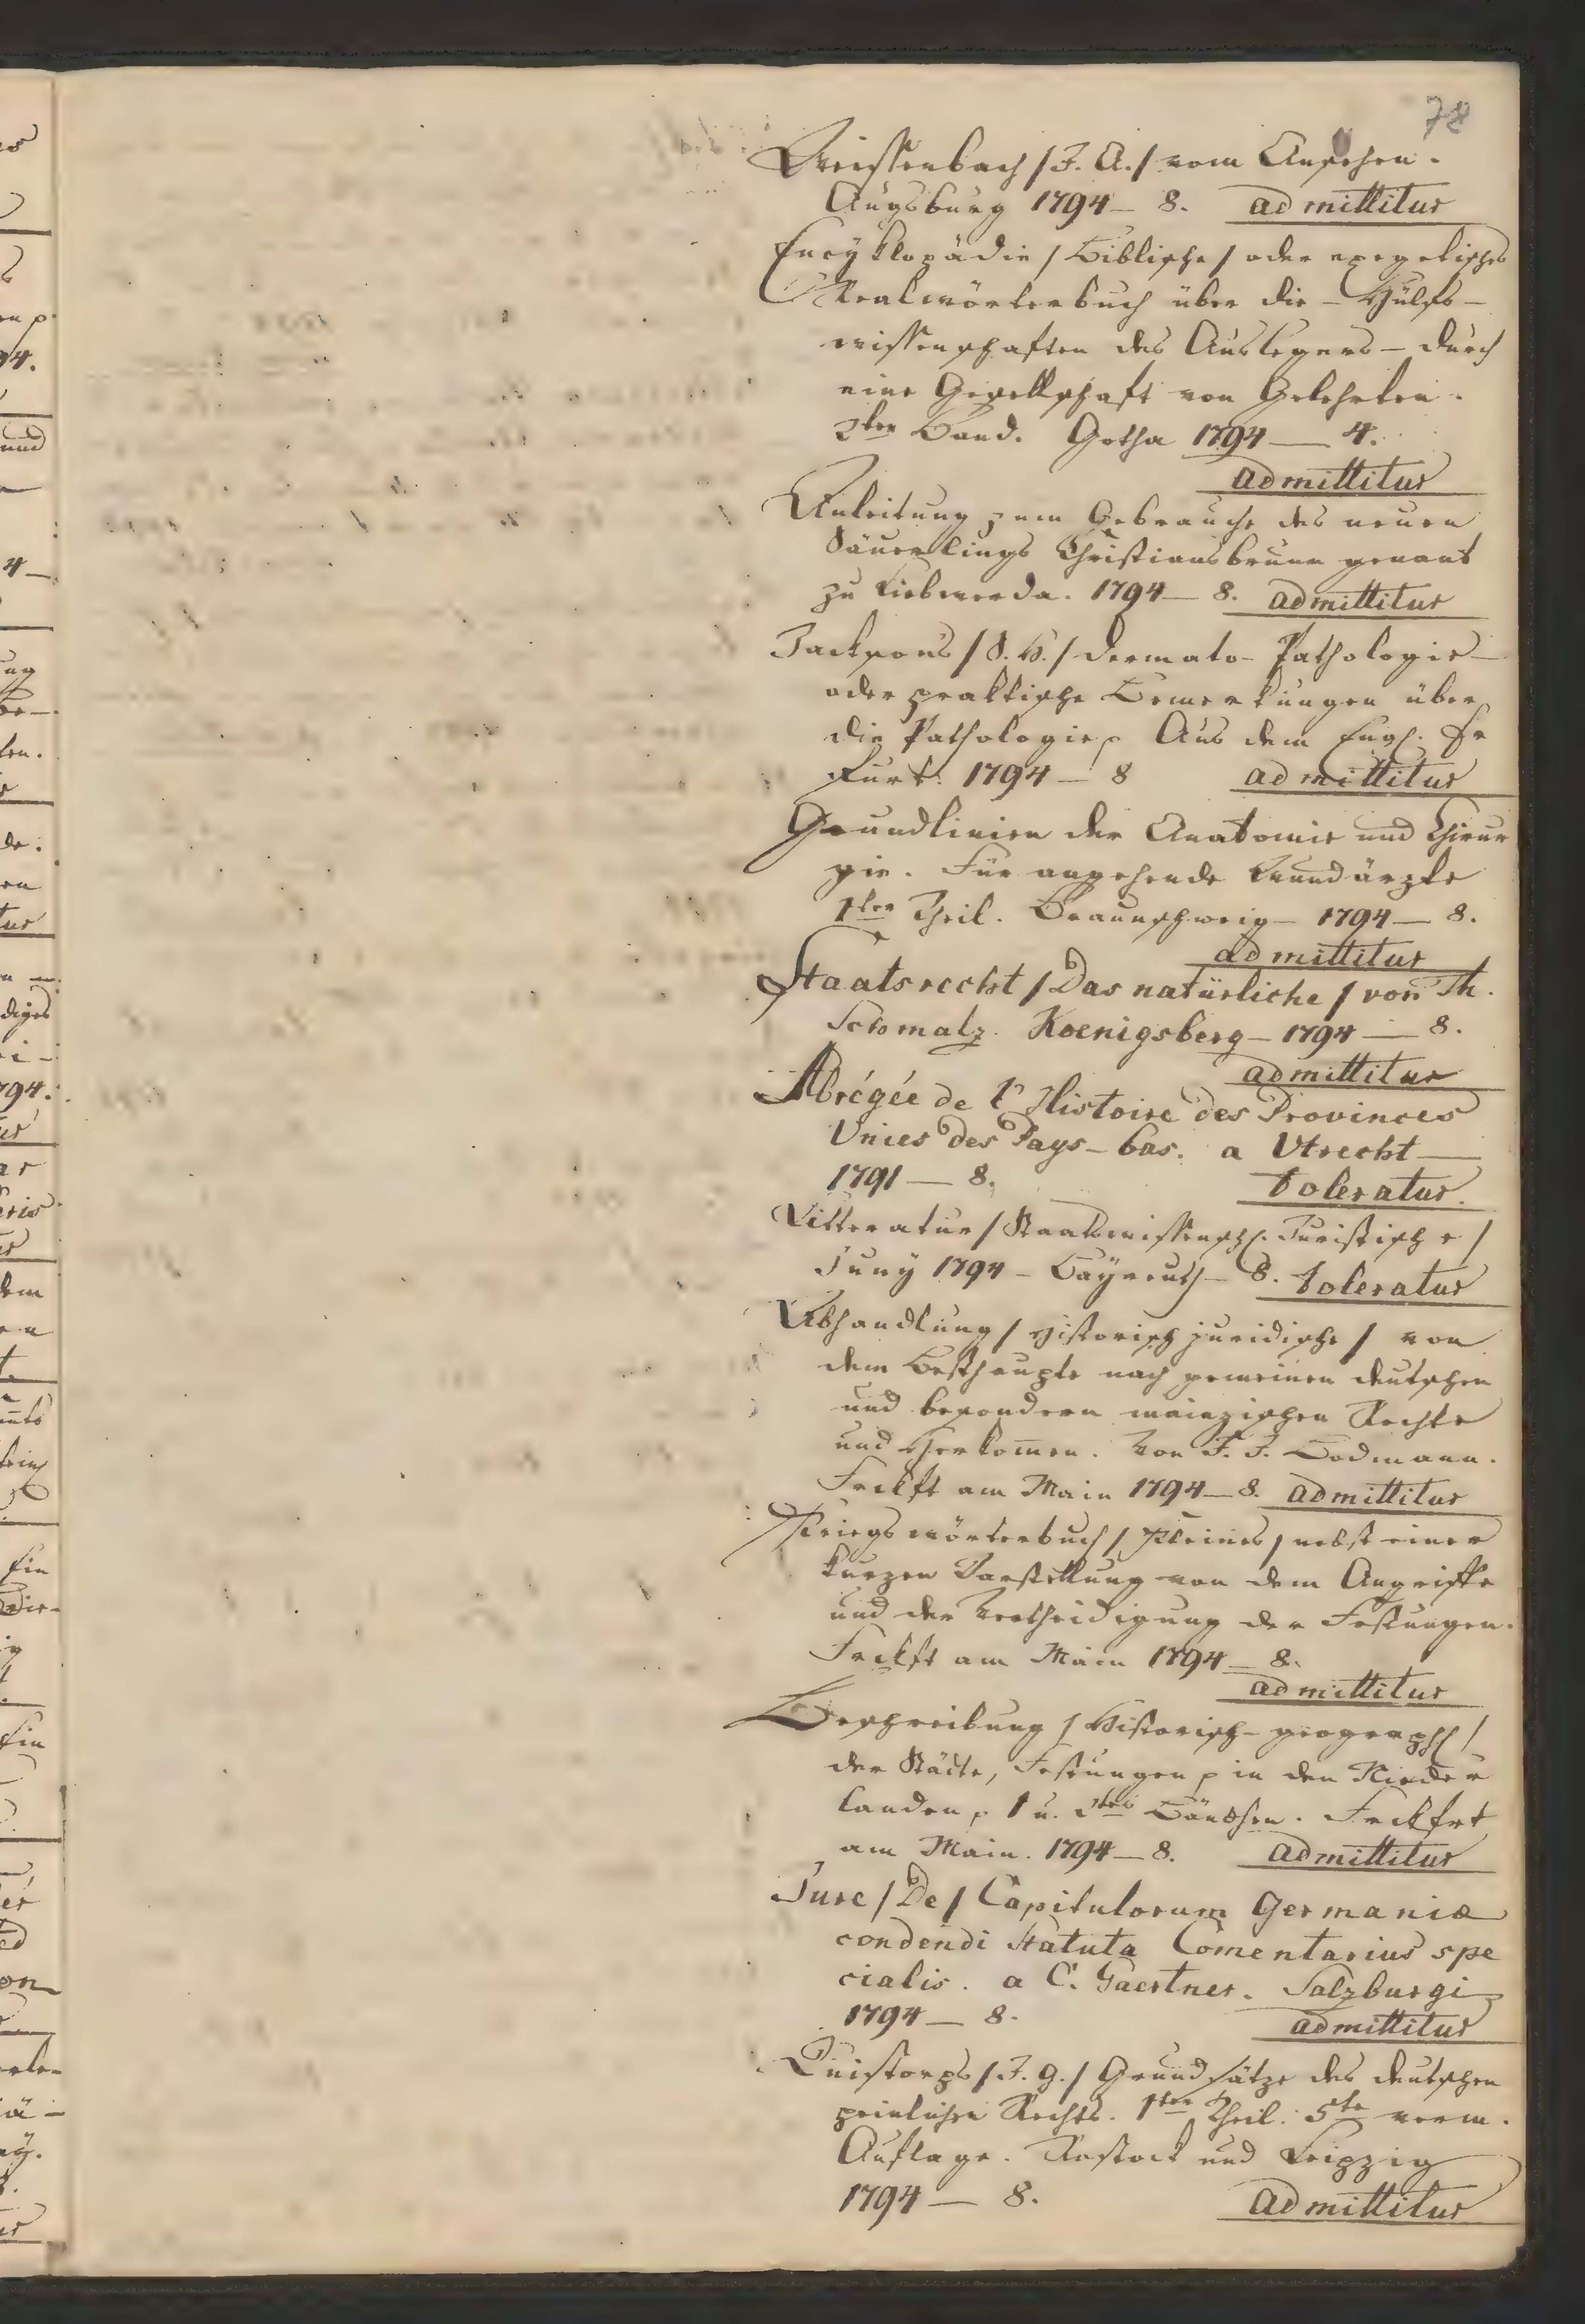 78
Weissenbach /J. A./ vom Ansehen.
Augsburg 1794 — 8. admittitur
Encyklopädie / Biblische / oder exegetisches
Realwörterbuch über die — Hülfs-
wissenschaften des Auslegers — durch
eine Gesellschaft von Gelehrten.
2ter Band. Gotha 1794 — 4.
admittitur
Anleitung zum Gebrauche des neuen
Säuerlings Christiansbrunn genant
zu Liebwerda. 1794 — 8. admittitur
Jacksons /S. H./ Dermato-Pathologie —
oder praktische Bemerkungen über
die Pathologie p Aus dem Engl. Er
furt. 1794 — 8 admittitur
Grundlinien der Anatomie und Chirur
gie. Für angehende Wundärzte
1ter Theil. Braunschweig — 1794 — 8.
admittitur
Staatsrecht / Das natürliche / von Th.
Schmalz. Koenigsberg — 1794 — 8.
admittitur
Abrégée de l'Histoire des Provinces
Unies des Pays-bas. a Utrecht —
1791 — 8. toleratur.
Litteratur / Staatswissenschl. Juristische /
Juny 1794 — Bayreuth — 8. toleratur
Abhandlung / Historisch juridische / von
dem Besthaupte nach gemeinen deutschen
und besondern mainzischen Rechte
und Herkom̄en. Von F. J. Bodmann.
Frckft am Main 1794 — 8. admittitur
Kriegswörterbuch / Kleines / nebst einer
kurzen Darstellung von dem Angriffe
und der Vertheidigung der Festungen.
Frckft am Main 1794 — 8.
admittitur
Beschreibung / Historisch-geographl /
der Städte, Festungen p in den Nieder
landen p 1 u. 2tes Bändchen. Frckfrt
am Main. 1794 — 8. admittitur
Jure / De / Capitulorum Germaniæ
condendi Statuta Com̄entarius spe
cialis. a C. Gaertner. Salzburgi
1794 — 8. admittitur
Quistorps /J. G./ Grundsätze des deutschen
peinlichen Rechts. 1ter Theil. 5te verm.
Auflage. Rostock und Leipzig
1794 — 8. admittitur